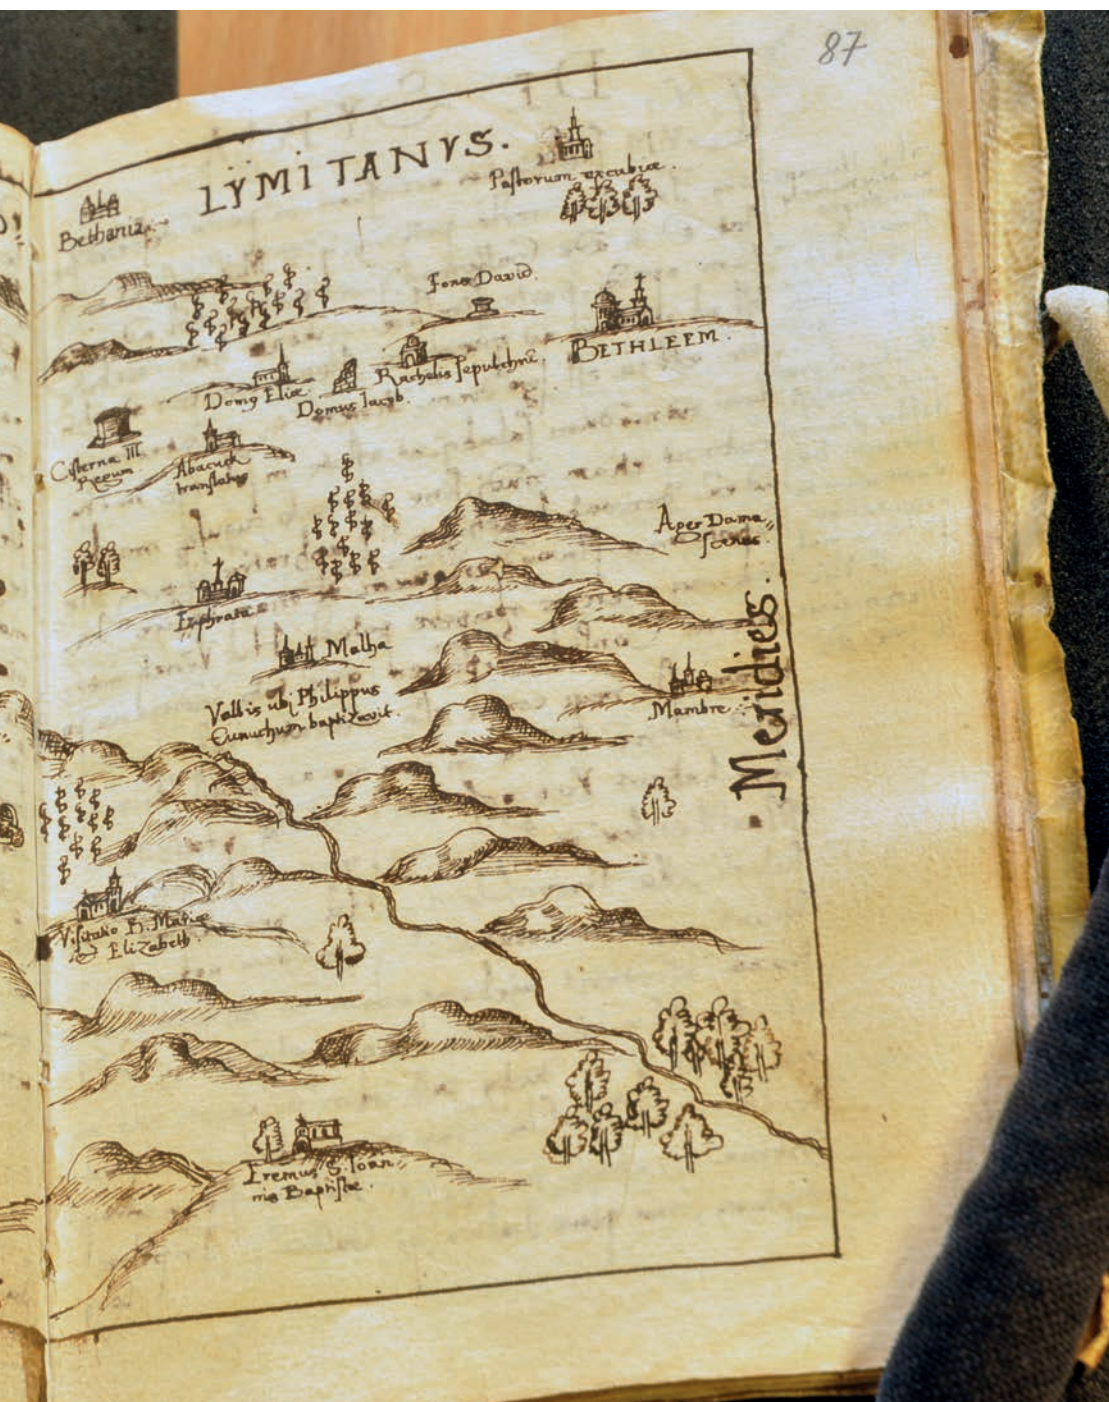 87
LYMITANVS.
Pastorum excubiæ.
Bethania.
Fons David.
BETHLEEM.
Rachelis sepulchrũ.
Domꝰ Eliæ
Domus Iacob.
Cisterna III.
Regum
Abacuck
translatus
Ager Dama〃
scenus.
Euphrata
Malha
Vallis ubj Philippus
Eunuchum baptizavit.
Mambre
Meridies.
Visitatio B. Mariæ
Elizabeth.
Eremus S. Ioan〃
nis Baptistæ.